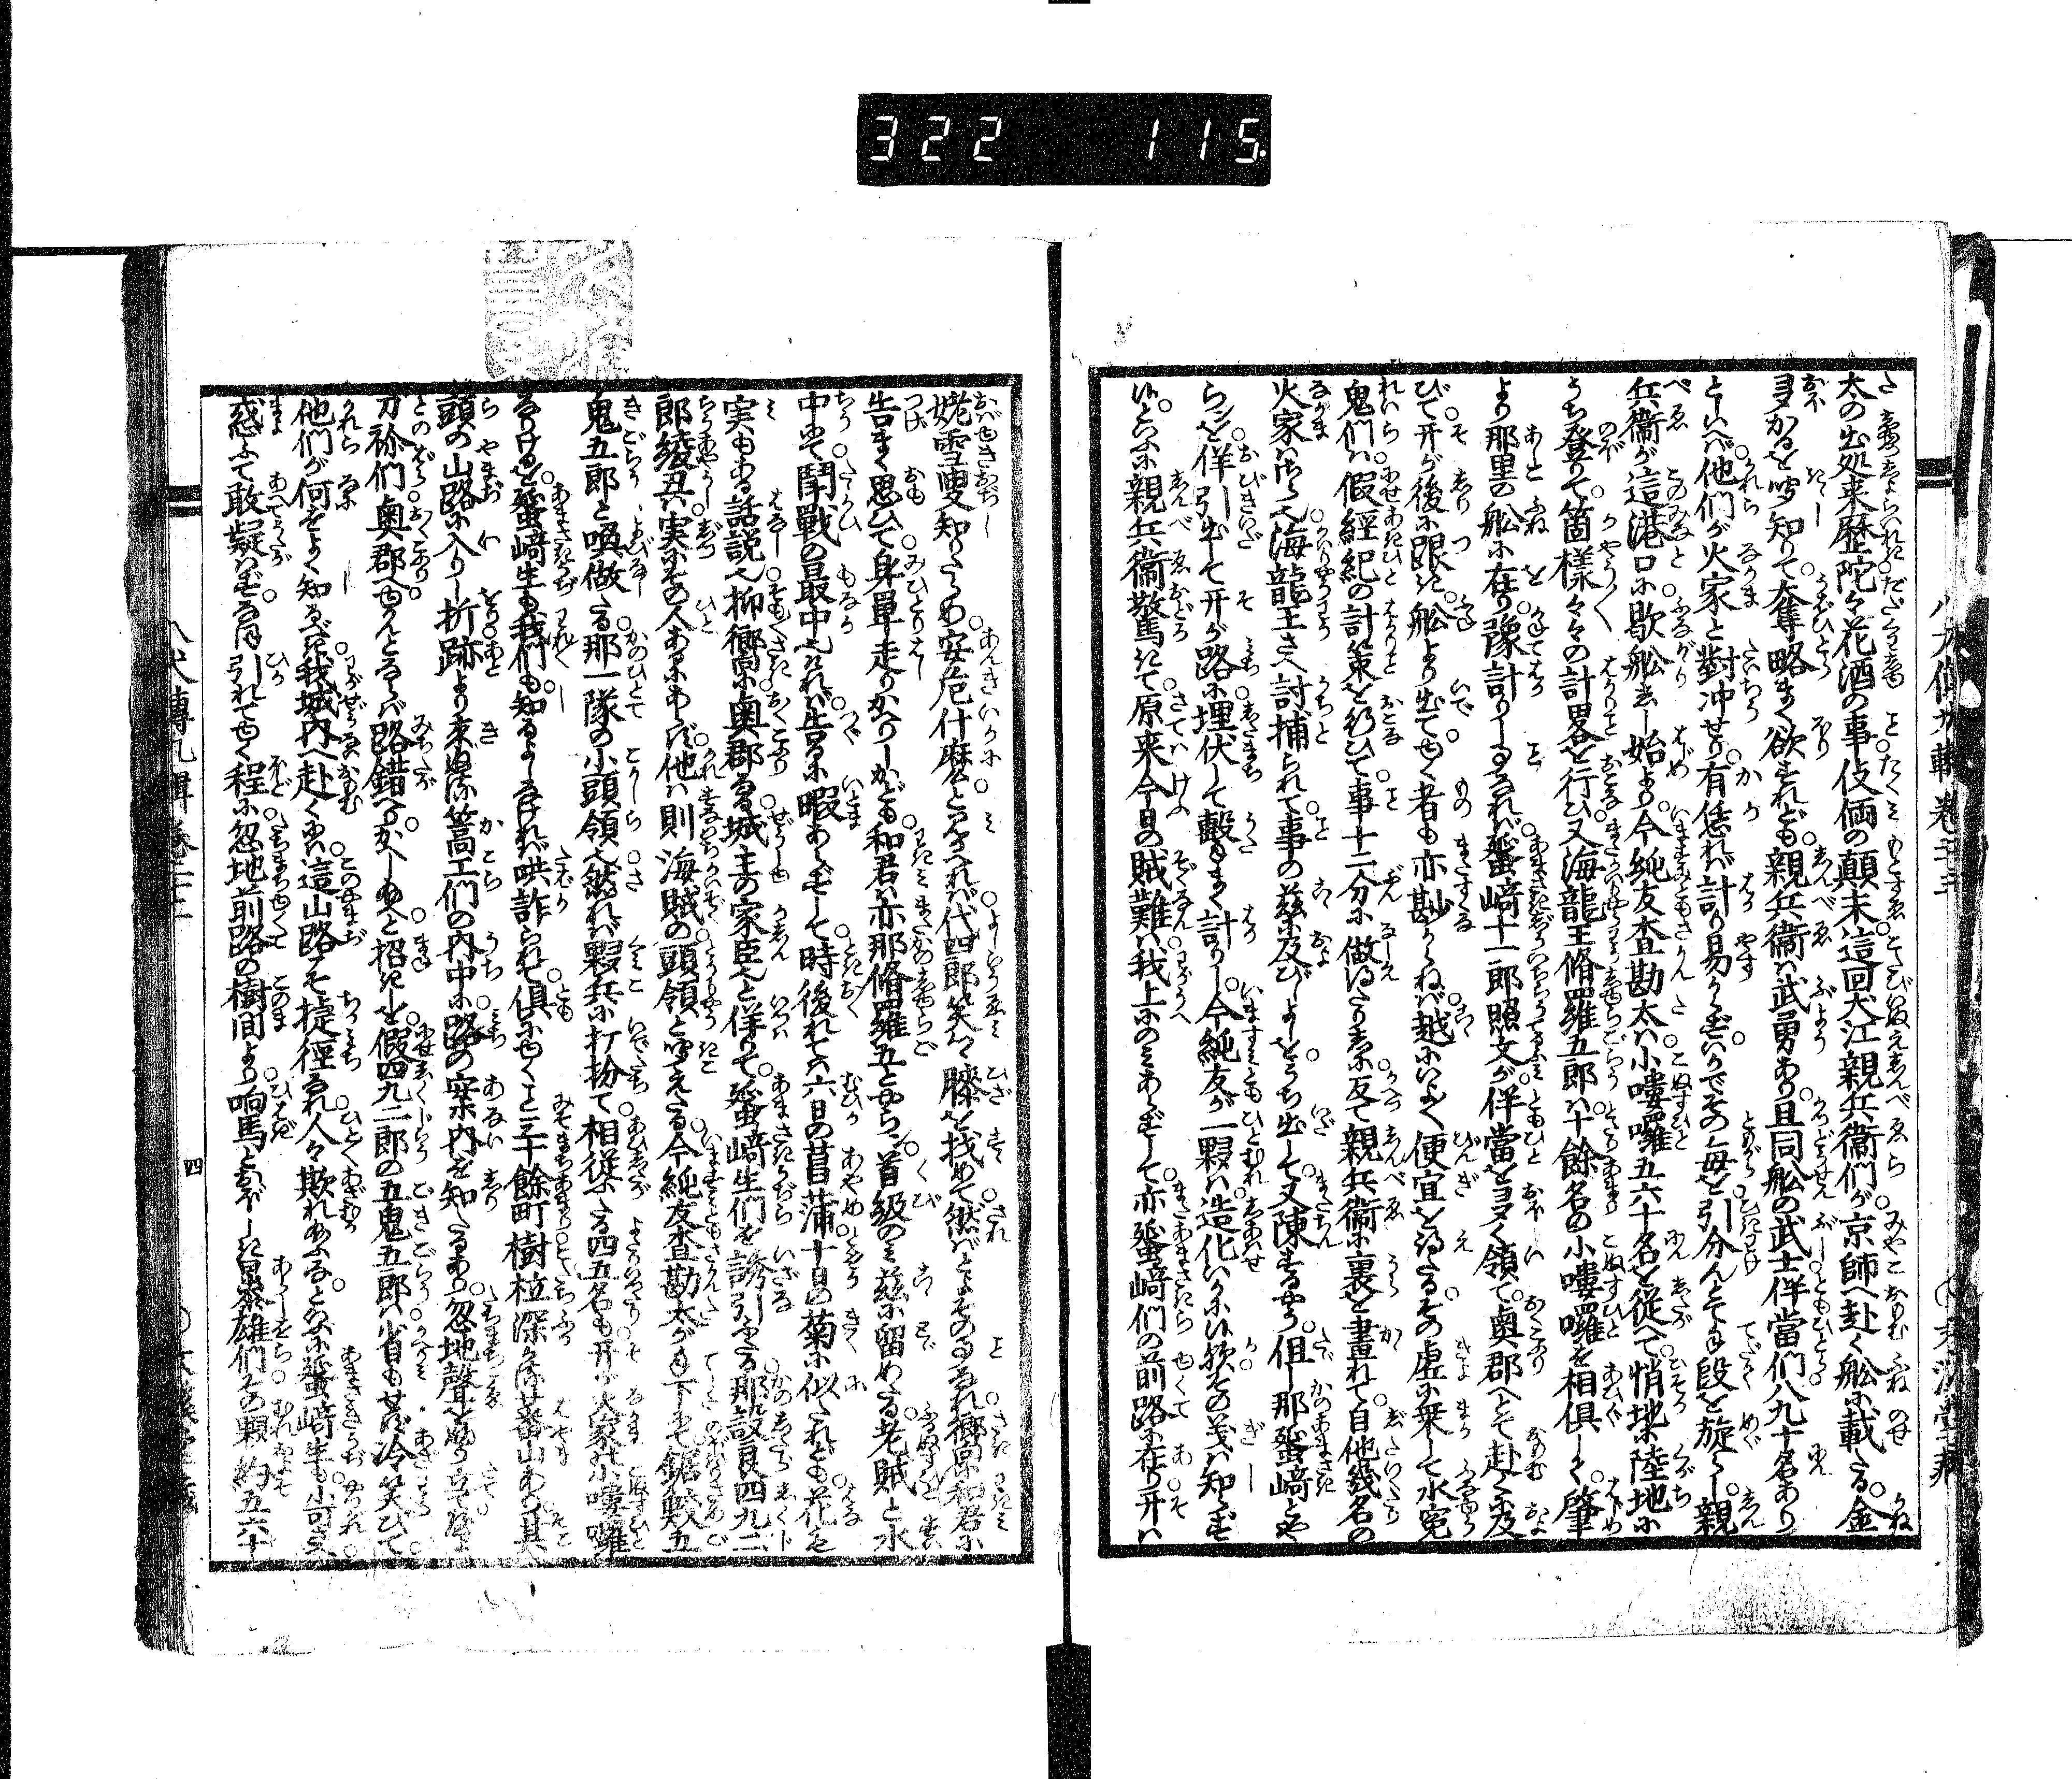 322 115.
太の出処来歴陀々花酒の事伎倆の顛末這回犬江親兵衞們が京師へ赴く舩に載たる金
多かるを皆知りて大奪略まく欲すれども親兵衞は武勇あり且同舩の武士伴當們八九十名あり
といへば他們が火家と對冲せり有恁れば計り易からずいかでその毎を引分んとて手段を旋らし親
兵衞が這港口に歇舩せし始より今純友査勘太は小嘍囉五六十名を従へて悄地に陸地に
うち登りて箇様々々の計畧を行ひ又海龍王脩羅五郎は十餘名の小嘍囉を相倶しく肇
より那里の舩に在り豫計りしるなれば蜑﨑十一郎照文が伴當を多く領て奥郡へとて赴くに及
びて开が後に跟き舩より出てゆく者も亦尠からねば越にいよ〳〵便宜を得たるその虚に乗して水寃
鬼們は假經紀の計策を行ひて事十二分に做得たりしに反て親兵衞に裏を畫れて自他幾名の
火家はさら也海龍王さへ討捕られて事の茲に及びよしをうち出して又陳るやう但那蜑﨑とや
らンを佯引出して开が路に埋伏して轂まく計りし今純友が一夥は造化いかに候はんその義は知らず
候といふに親兵衞驚きて原来今日の賊難は我上にのみあらずして亦蜑﨑們の前路に在り开は
姥雪叟知りたるや安危什麽といそがせば代四郎笑つゝ膝を找めて然ばとよその事なれ嚮に和君に
告まく思ひて身單走りかへりしかども和君は亦那脩羅五とやらンが首級のみ茲に留めたる老賊と水
中にて鬪戰の最中なれば告るに暇あらずして時後れては六日の菖蒲十日の菊に似たれども花も
実もある話説也抑嚮に奥郡なる城主の家臣也と佯りて蜑﨑生們を誘引ふたる那設良四九二
郎綾丑は実にその人あるにあらず他は則海賊の頭領と聞えたる今純友査勘太が手下にて鋸鮫五
鬼五郎と喚做たる那一隊の小頭領也然れば夥兵に打扮て相従ふたる四五名も开が火家の小嘍囉
なりけるを蜑﨑生も我們も知るよしなければ哄詐られて倶にゆくこと三十餘町樹柆深き蕃山あり其
頭の山路に入りし折跡より来ぬる篙工們の内中に路の案内を知たるあり忽地聲をふり立て喃
刀祢們奥郡へゆかんとならば路錯へり
他們が何をよく知るべき我城内へ赴くには這山路こそ捷徑なれ人々欺かれ
惑ふて敢疑はずなほ引れてゆく程に忽地前路の樹間より响馬とおぼしき暴雄們その夥約五六十
四